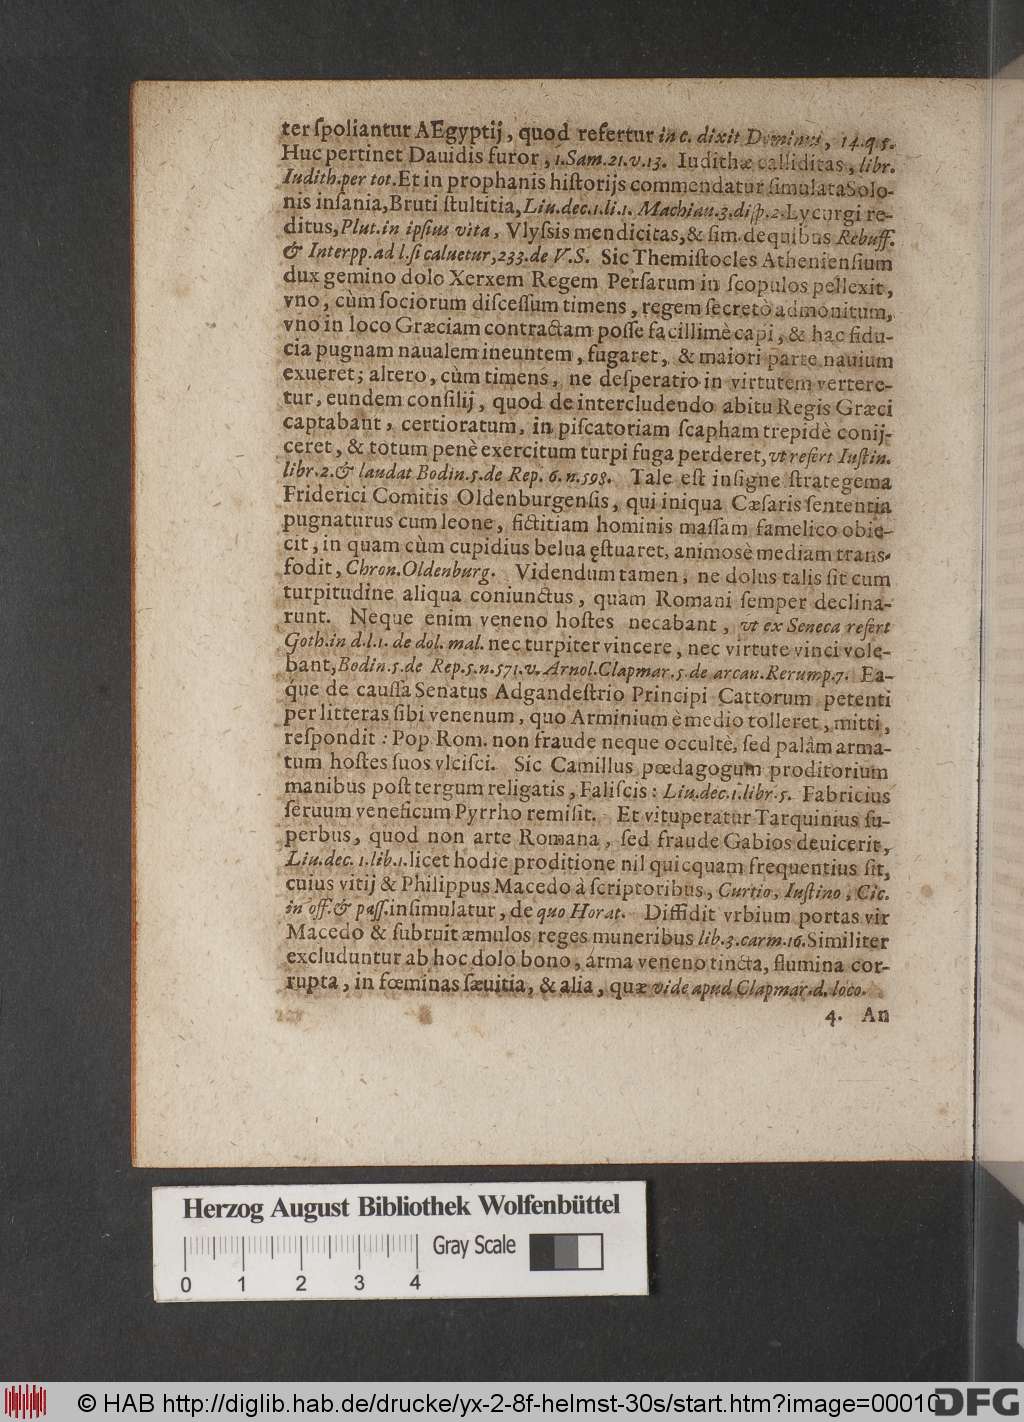 ter ſpoliantur AEgyptij, quod refertur in c. dixit Dominus, 14.q.5.
Huc pertinet Dauidis furor, 1.Sam.21.v.13. Iudithæ calliditas, libr.
Iudith.per tot.Et in prophanis hiſtorijs commendatur ſimulataSolo-
nis inſania,Bruti ſtultitia,Liu.dec.1.li.1. Machiau.3.diſp.2.Lycurgi re-
ditus,Plut.in ipſius vita, Vlyſsis mendicitas,& ſim.dequibus Rebuff.
& Interpp.ad l.ſi caluetur,233.de V.S. Sic Themiſtocles Athenienſium
dux gemino dolo Xerxem Regem Perſarum in ſcopulos pellexit,
vno, cùm ſociorum diſceſſum timens, regem ſecretò admonitum,
vno in loco Græciam contractam poſſe facillimè capi, & hac fidu-
cia pugnam naualem ineuntem, fugaret, & maiori parte nauium
exueret; altero, cùm timens, ne deſperatio in virtutem vertere-
tur, eundem conſilij, quod de intercludendo abitu Regis Græci
captabant, certioratum, in piſcatoriam ſcapham trepidè conij-
ceret, & totum penè exercitum turpi fuga perderet, vt refert Iuſtin.
libr.2.& laudat Bodin.5.de Rep. 6. n.598. Tale eſt inſigne ſtrategema
Friderici Comitis Oldenburgenſis, qui iniqua Cæſaris ſententia
pugnaturus cum leone, fictitiam hominis maſſam famelico obie-
cit, in quam cùm cupidius belua ęſtuaret, animosè mediam trans-
fodit, Chron.Oldenburg. Videndum tamen, ne dolus talis ſit cum
turpitudine aliqua coniunctus, quam Romani ſemper declina-
runt. Neque enim veneno hoſtes necabant, vt ex Seneca refert
Goth.in d.l.1. de dol. mal. nec turpiter vincere, nec virtute vinci vole-
bant,Bodin.5.de Rep.5.n.571.v. Arnol.Clapmar.5.de arcan.Rerump.7. Ea-
que de cauſſa Senatus Adgandeſtrio Principi Cattorum petenti
per litteras ſibi venenum, quo Arminium è medio tolleret, mitti,
reſpondit: Pop Rom. non fraude neque occultè, ſed palâm arma-
tum hoſtes ſuos vlciſci. Sic Camillus pœdagogum proditorium
manibus poſt tergum religatis, Faliſcis: Liu.dec.1.libr.5. Fabricius
ſeruum veneficum Pyrrho remiſit. Et vituperatur Tarquinius ſu-
perbus, quod non arte Romana, ſed fraude Gabios deuicerit,
Liu.dec. 1.lib.1.licet hodie proditione nil quicquam frequentius ſit,
cuius vitij & Philippus Macedo à ſcriptoribus, Curtio, Iuſtino, Cic.
in off.& paſſ.inſimulatur, de quo Horat. Diffidit vrbium portas vir
Macedo & ſubruit æmulos reges muneribus lib.3.carm.16.Similiter
excluduntur ab hoc dolo bono, arma veneno tincta, flumina cor-
rupta, in fœminas ſæuitia, & alia, quæ vide apud Clapmar.d. loco.
4. An
Herzog August Bibliothek Wolfenbüttel
0 1 2 3 4 Gray Scale
© HAB http://diglib.hab.de/drucke/yx-2-8f-helmst-30s/start.htm?image=00010
DFG